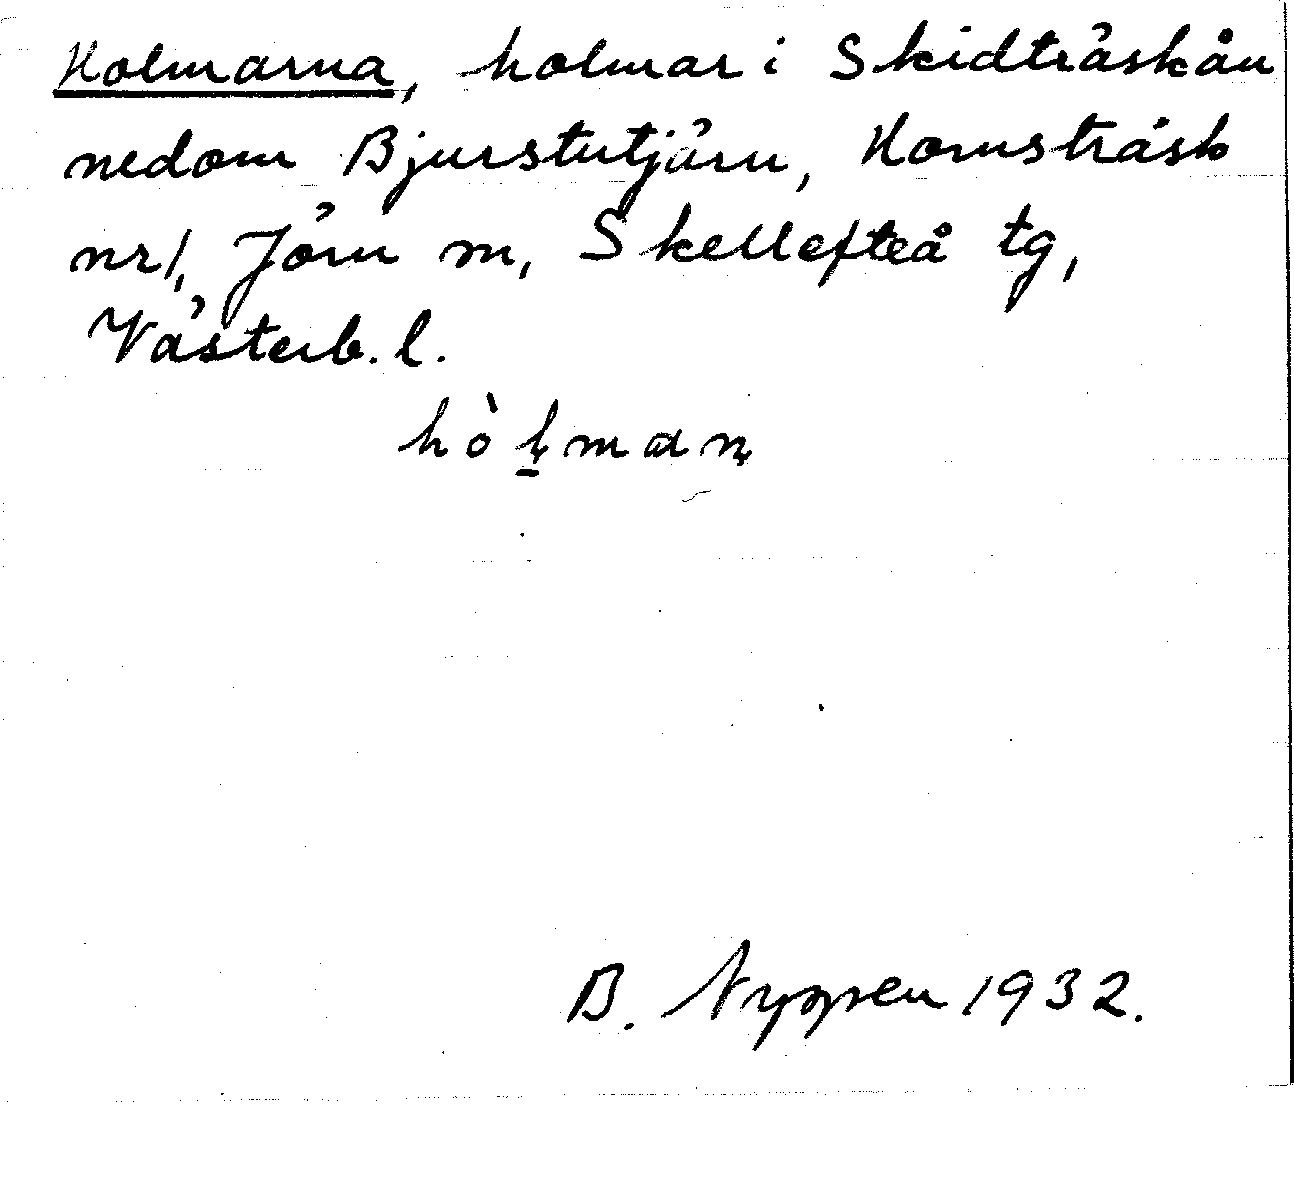 Holmarna, holmar i Skidträskån
nedom Bjurstutjärn, Hornsträsk
nr 1, Jörn sn, Skellefteå tg,
Västerb. l.
hòḷman̩
B. Nyppen 1932.